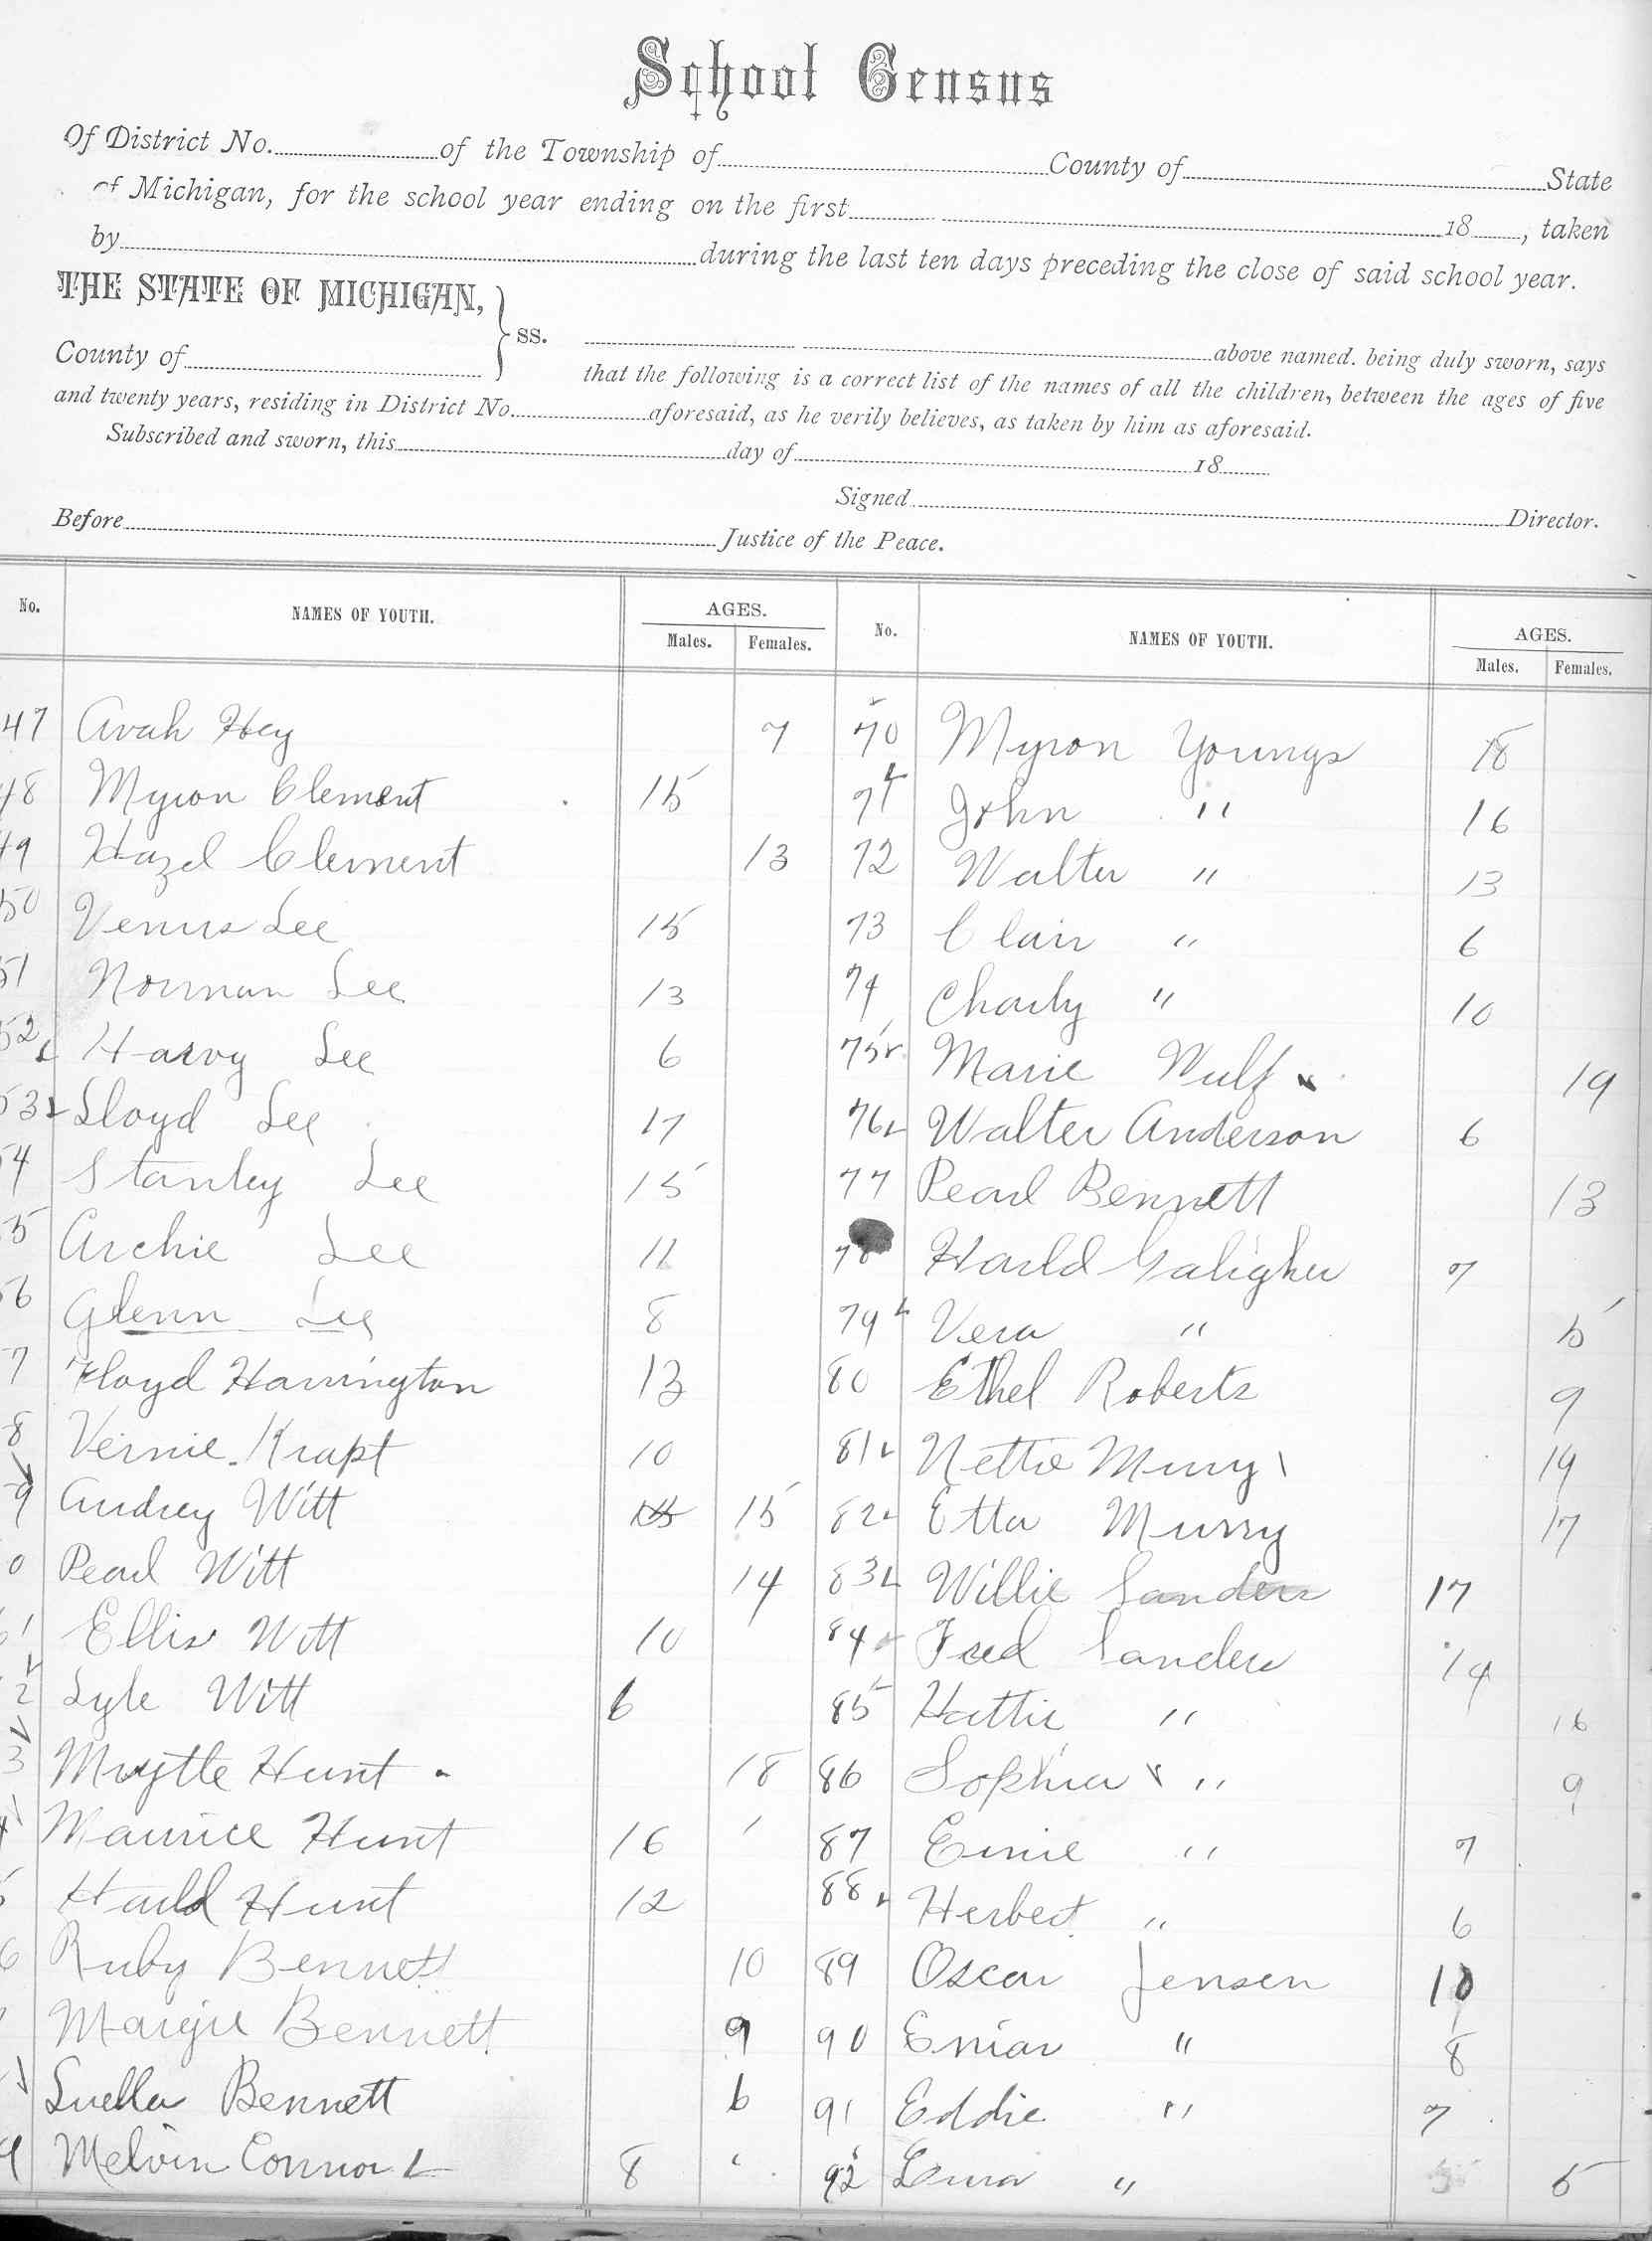 School Census
Of District No. of the Township of County of State
of Michigan, for the school year ending on the first 18 , taken
by during the last ten days preceding the close of said school year.
THE STATE OF MICHIGAN,
County of
ss.
above named. being duly sworn, says
that the following is a correct list of the names of all the children, between the ages of five
and twenty years, residing in District No. aforesaid, as he verily believes, as taken by him as aforesaid.
Subscribed and sworn, this day of 18
Signed Director.
Before Justice of the Peace.
No. NAMES OF YOUTH. AGES. Males. Females. No. NAMES OF YOUTH. AGES. Males. Females.
47 Avah Hey 7
48 Myron Clement 15
49 Hazel Clement 13
50 Venus Lee 15
51 Norman Lee 13
52 Harvy Lee 6
53 Lloyd Lee 17
54 Stanley Lee 15
55 Archie Lee 11
6 Glenn Lee 8
7 Floyd Harrington 13
8 Vernie Krapt 10
9 Audrey Witt 15
0 Pearl Witt 14
61 Ellis Witt 10
2 Lyle Witt 6
3 Mrytle Hunt 18
4 Maurice Hunt 16
5 Harld Hunt 12
6 Ruby Bennett 10
Margie Bennett 9
Luella Bennett 6
9 Melvin Connor 8
70 Myron Youngs 18
71 John " 16
72 Walter " 13
73 Clair " 6
74 Charly " 10
75 Marie Wulf 19
76 Walter Anderson 6
77 Pearl Bennett 13
78 Harld Galigher 7
79 Vera " 5
80 Ethel Roberts 9
81 Nettie Murry 19
82 Etta Murry 17
83 Willie Sanders 17
84 Fred Sanders 14
85 Hattie " 16
86 Sophia " 9
87 Ernie " 7
88 Herbert " 6
89 Oscar Jensen 10
90 Eniar " 8
91 Eddie " 7
92 " 5